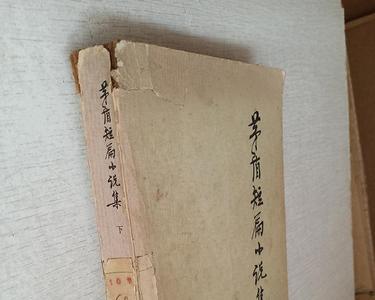 茅盾短篇小说集
下
茅盾短篇小说集